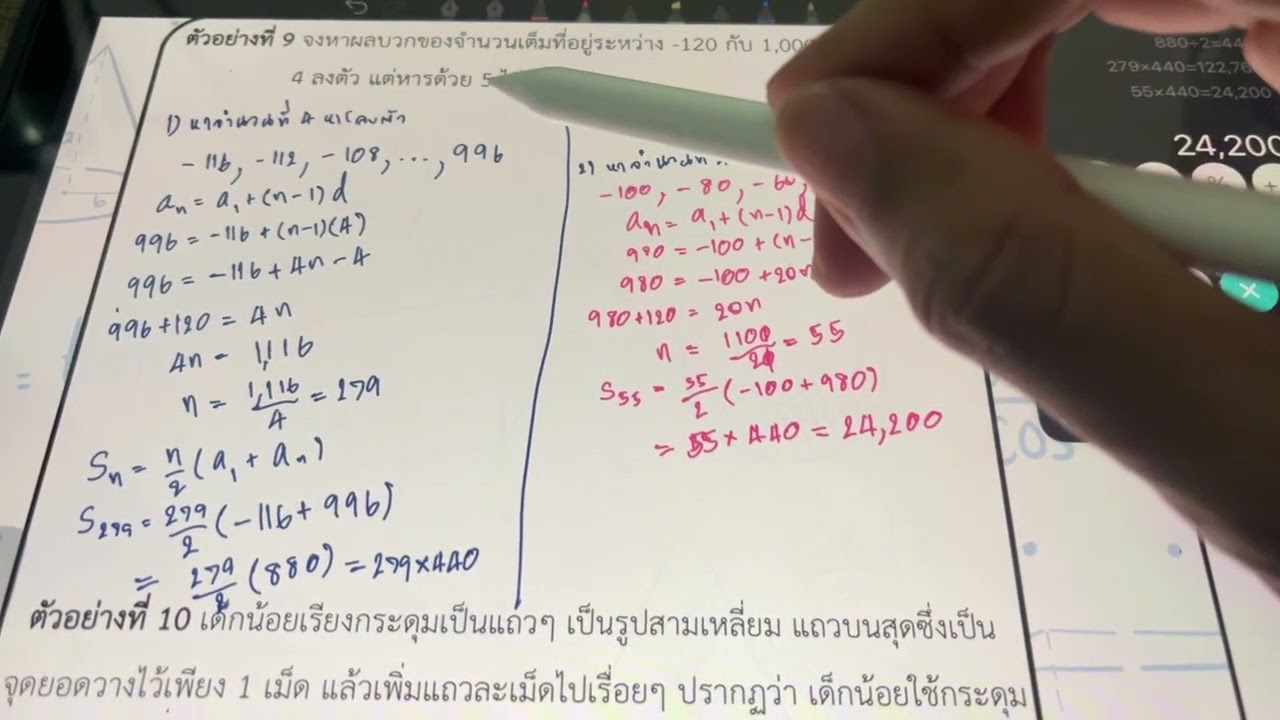 ตัวอย่างที่ 9 จงหาผลบวกของจำนวนเต็มที่อยู่ระหว่าง -120 กับ 1,00
4 ลงตัว แต่หารด้วย 5
1) หาจำนวนที่ 4 หารลงตัว
-116, -112, -108, ..., 996
aₙ = a₁ + (n-1) d
996 = -116 + (n-1)(4)
996 = -116 + 4n - 4
996 + 120 = 4n
4n = 1,116
n = 1,116/4 = 279
Sₙ = n/2 (a₁ + aₙ)
S₂₇₉ = 279/2 (-116 + 996)
= 279/2 (880) = 279×440
2) หาจำนวนที่
-100, -80, -60,
aₙ = a₁ + (n-1) d
980 = -100 + (n-
980 = -100 + 20n
980 + 120 = 20n
n = 1100/20 = 55
S₅₅ = 55/2 (-100 + 980)
= 55 × 440 = 24,200
880÷2=44
279×440=122,76
55×440=24,200
24,200
%
+
×
cos
ตัวอย่างที่ 10 เด็กน้อยเรียงกระดุมเป็นแถวๆ เป็นรูปสามเหลี่ยม แถวบนสุดซึ่งเป็น
จุดยอดวางไว้เพียง 1 เม็ด แล้วเพิ่มแถวละเม็ดไปเรื่อยๆ ปรากฏว่า เด็กน้อยใช้กระดุม